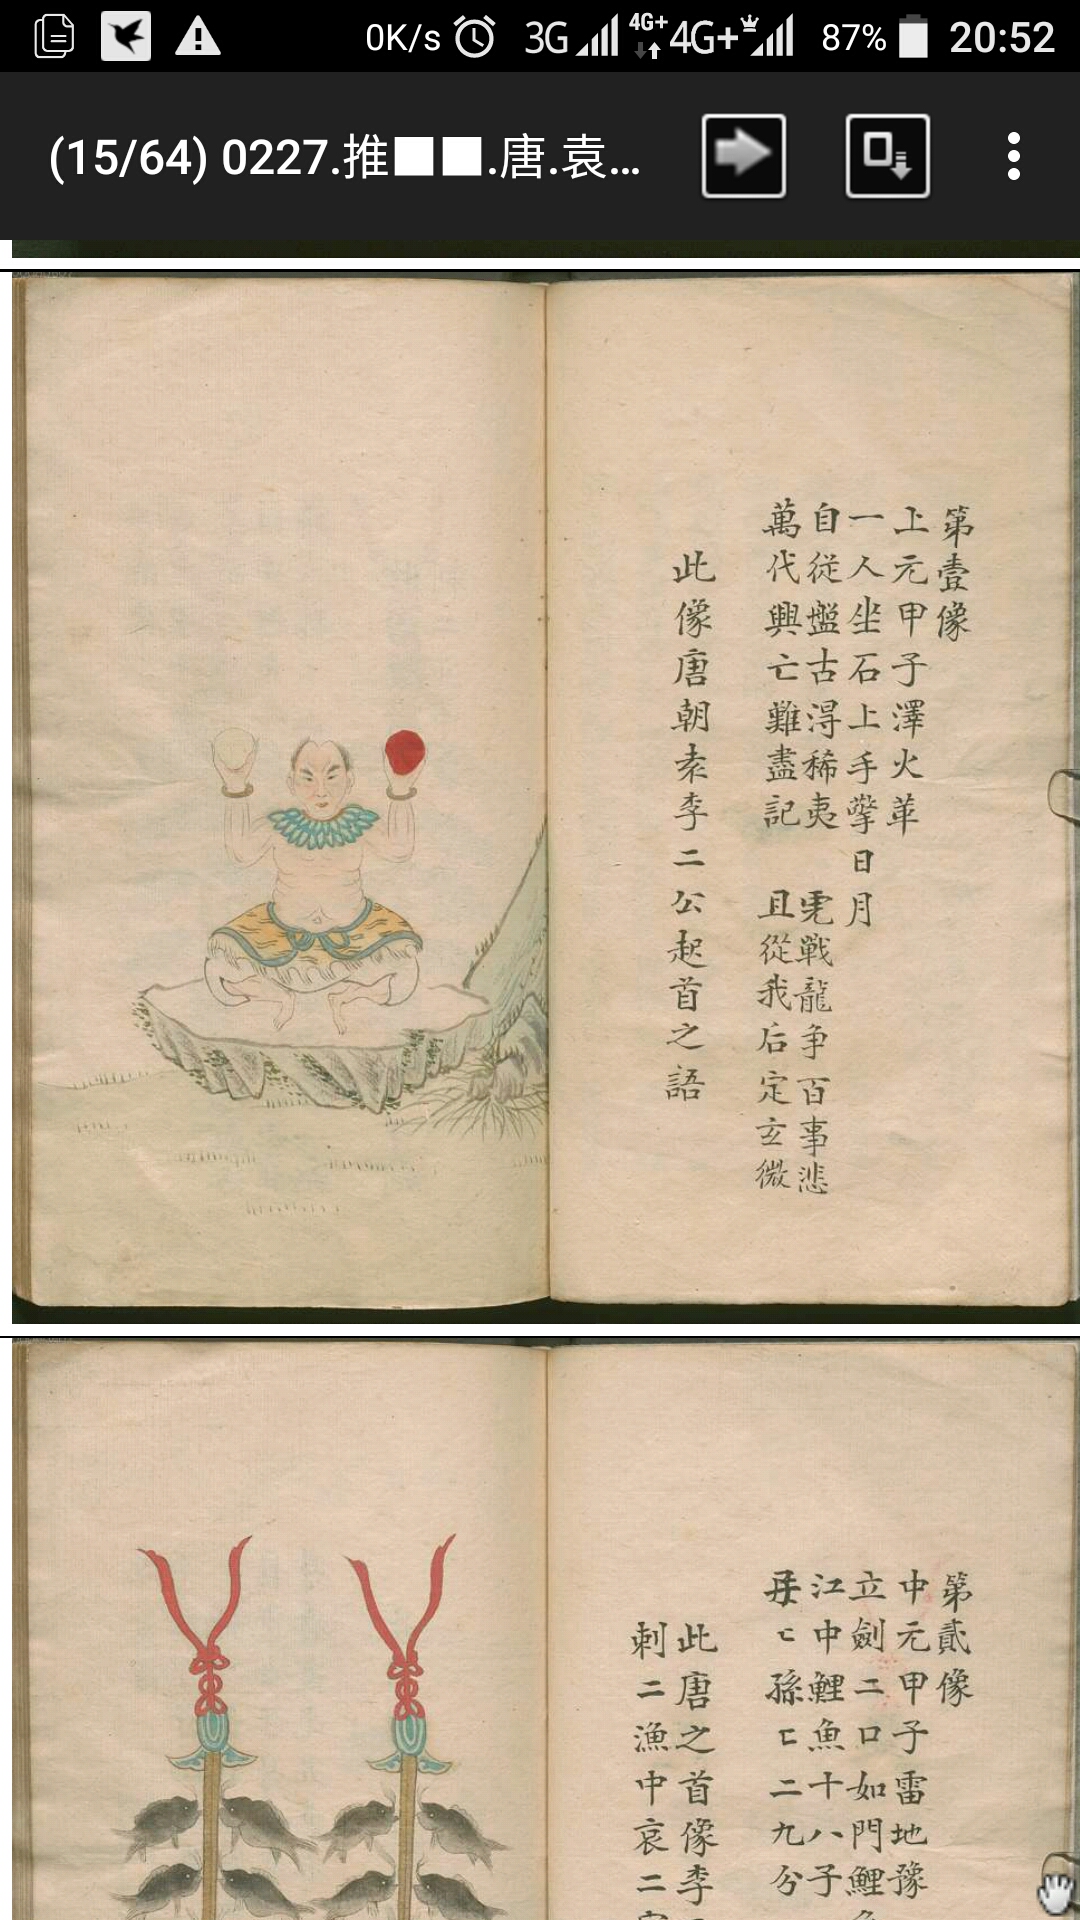 0K/s 3G 4G+ 4G+ 87% 20:52
(15/64) 0227.推■■.唐.袁...
第壹像
上元甲子澤火革
一人坐石上手擎日月
自從盤古得稀夷 虎戦龍争百事悲
萬代興亡難盡記 且從我后定玄微
此像唐朝袁李二公起首之語
第貳像
中元甲子雷地豫
立劍二口如門鯉
江中鯉魚十八子
子孫二九分
此唐之首像李
刺二漁中哀二